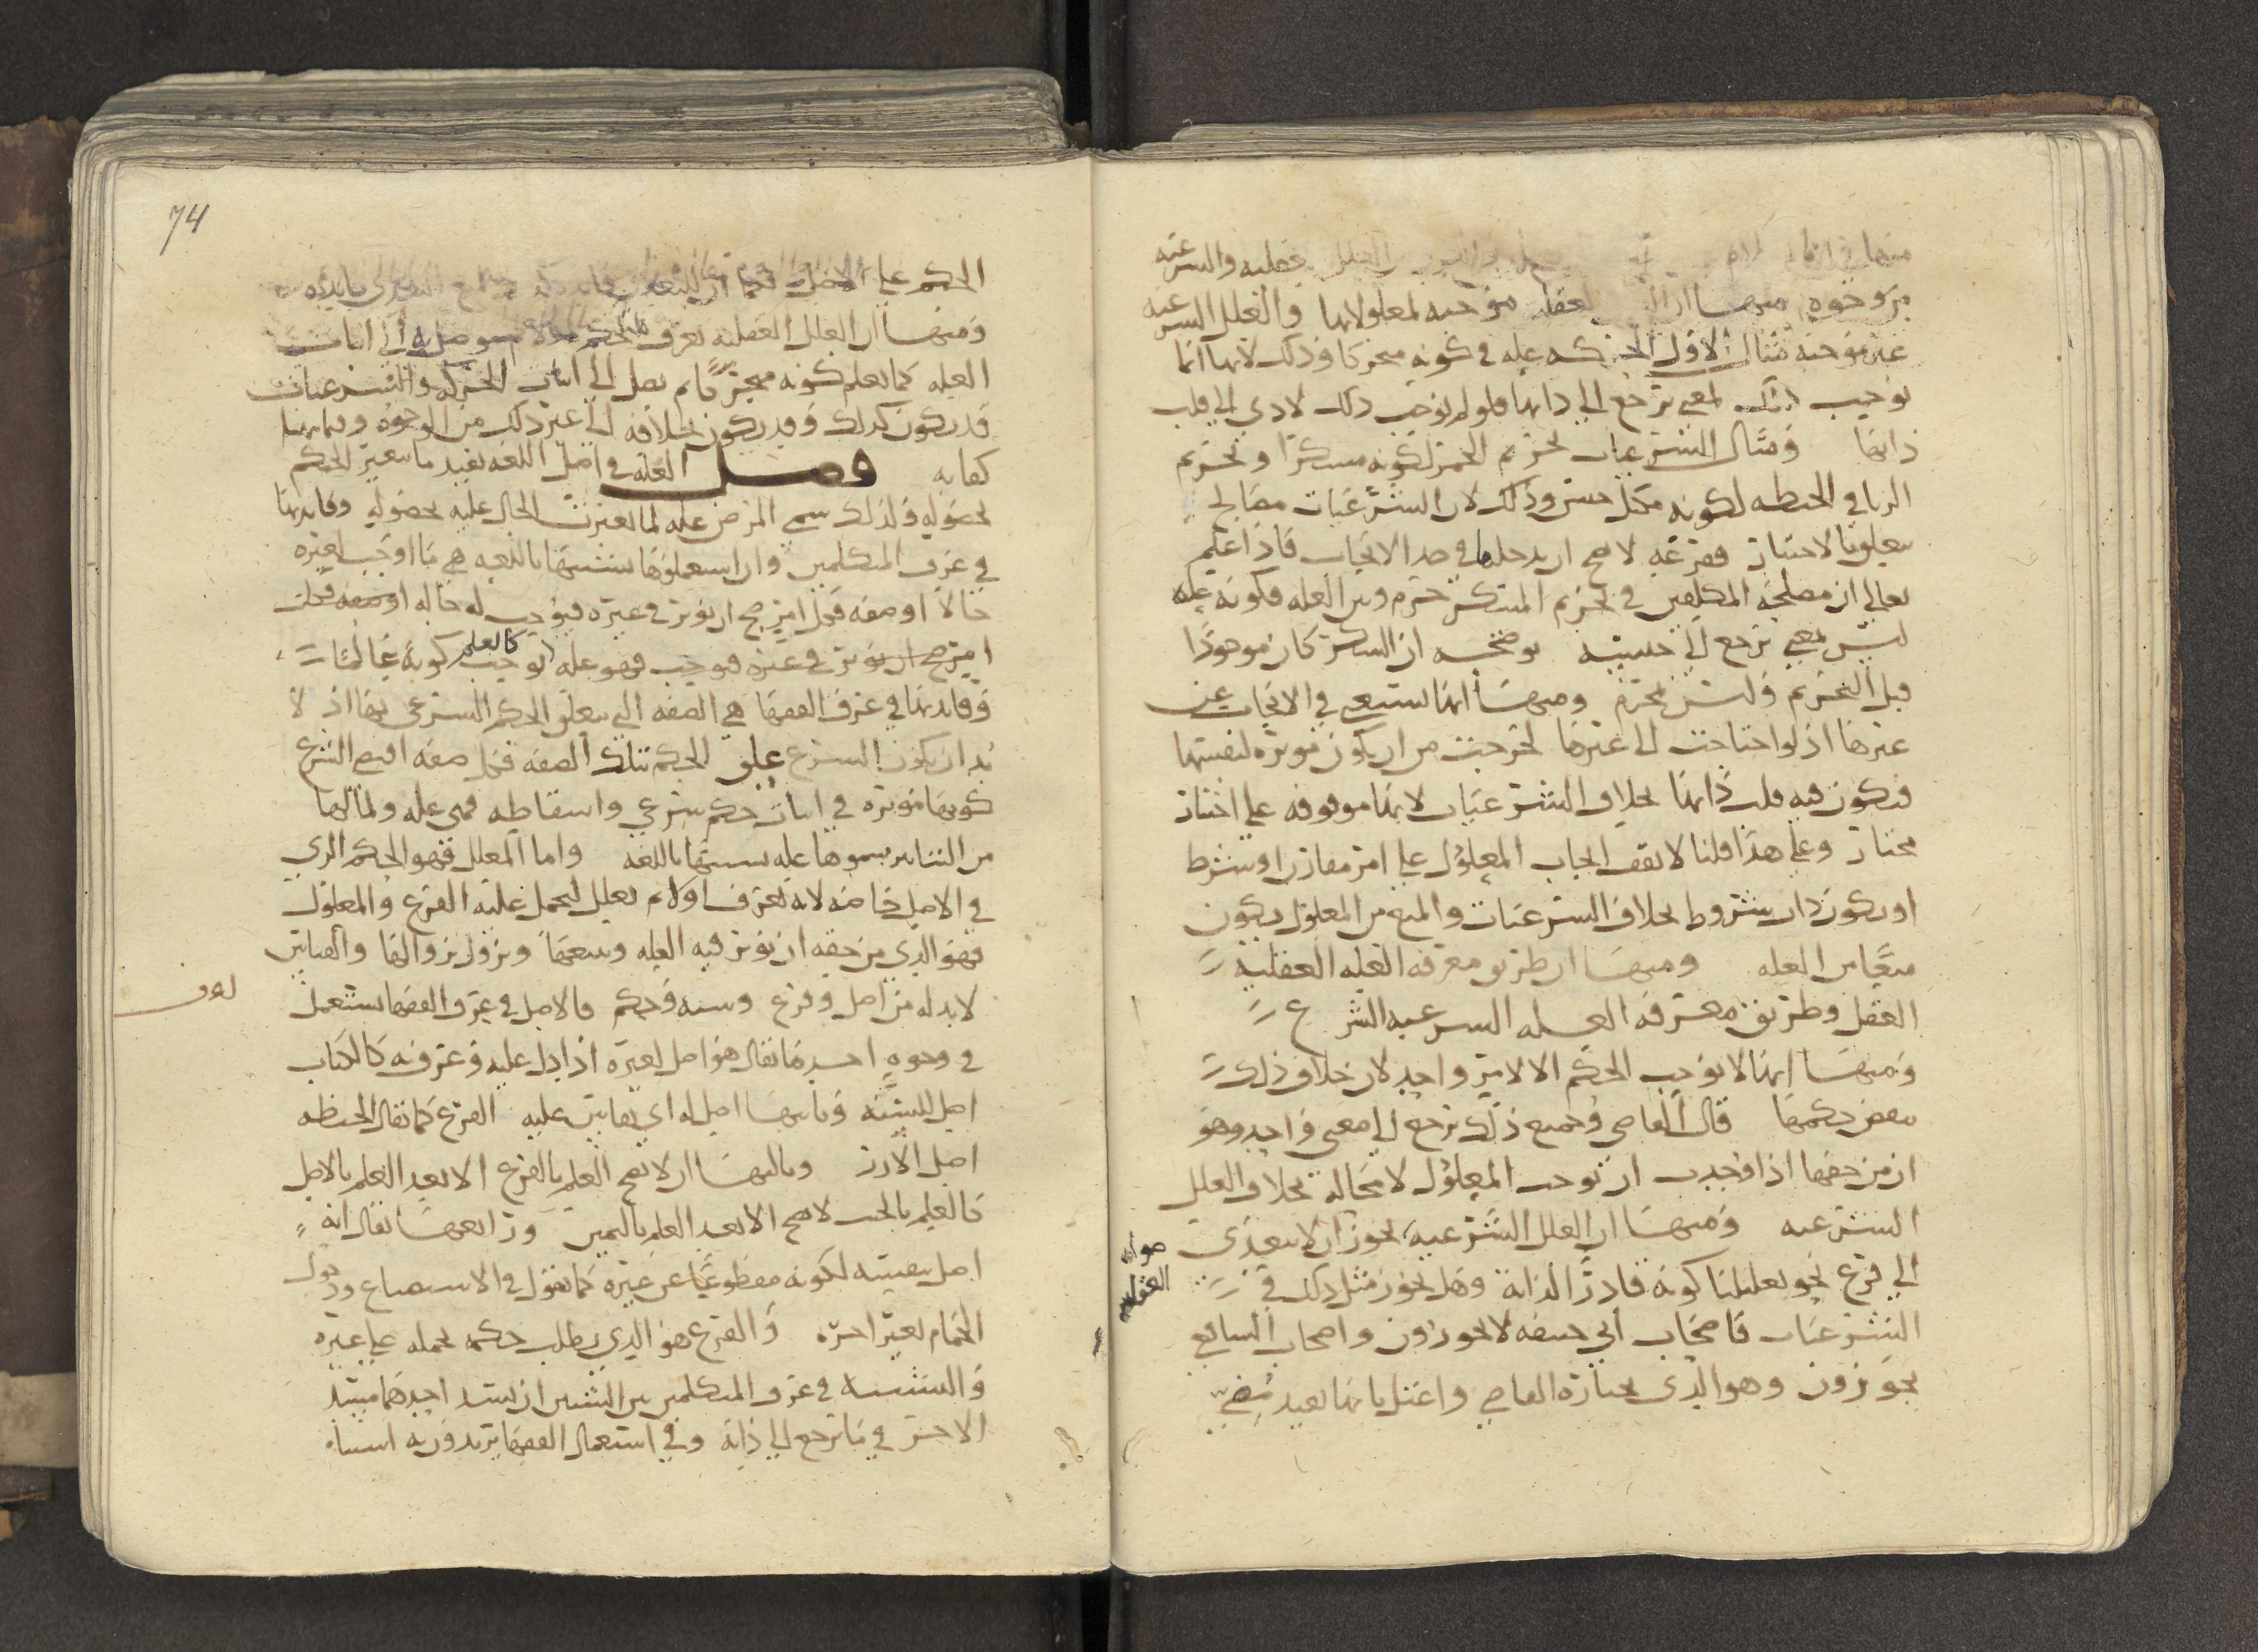 العقليه والشرعيه
من وجوه منها ان العقليه موجبه لمعلولاتها والعلل الشرعيه
غير موجبه مثال الاول الحركه عله في كونه متحركا وذلك لانها انما
توجب ذلك لمعنى يرجع الى ذاتها فلو لم توجب ذلك لادى الى قلب
ذاتها ومثال الشرعيات تحريم الخمر لكونه مسكرا وتحريم
الربا في الحنطه لكونه مكيل جنس وذلك لان الشرعيات مصالح
تعلقها لاختيار فقرعه لا يصح ان يدخلها في حد الايجاب فاذا علم
تعالى ان مصلحه المكلفين في تحريم المسكر حرم وبين العله فكونه عله
ليس لمعنى يرجع الى جنسيته يوضحه ان السكر كان موجودا
قبل التحريم وليس بمحرم ومنها انها تستغني في الايجاب عن
غيرها اذ لو احتاجت الى غيرها لخرجت من ان يكون موثره لنفسها
فيكون فيه قلب ذاتها بخلاف الشرعيات لانها موقوفه على اختيار
مختار وعلى هذا قلنا لا يقف ايجاب المعلول على امر مقارن او شرط
او يكون ذات شروط بخلاف الشرعيات والمنع من المعلول يكون
منعا من العله ومنها ان طريق معرفه العله العقليه
العقل وطريق معرفه العله الشرعيه الشرع
ومنها انها لا توجب الحكم الا لامر واحد لان خلاف ذلك
ينقض حكمها قال القاضي وجميع ذلك يرجع الى معنى واحد وهو
ان من حقها اذا وجدت ان توجب المعلول لا محاله بخلاف العلل
الشرعيه ومنها ان العلل الشرعيه يجوز ان لا تتعدى
الى فرع نحو تعليلنا كونه قادرا لذاته وهل يجوز مثل ذلك في
الشرعيات فاصحاب ابي حنيفه لا يجوزون واصحاب الشافعي
يجوزون وهو الذي يختاره القاضي واعتل بانها تفيد
العقليه
74
الحكم على الاصل
ومنها ان العلل العقليه يعرف الحكم ثم يتوصل به الى اثبات
العله كما يعلم كونه متحركا ثم يصل الى اثبات الحركه والشرعيات
قد يكون كذلك وقد يكون بخلافه الى غير ذلك من الوجوه وفيما بينا
كفايه فصل العله في اصل اللغه تفيد ما يتغير الحكم
بحصوله ولذلك سمي المرض عله لما تغيرت الحال عليه بحصوله وفايدتها
في عرف المتكلمين وان استعملوها تشبيها باللغه هي ما اوجب لغيره
حالا او صفه فكل امر صح ان يوثر في غيره فيوجب له حاله او صفه فكل
امر صح ان يوثر في غيره فيوجب فهو عله كالعلم يوجب كونه عالما
وفايدتها في عرف الفقها هي الصفه التي يتعلق الحكم الشرعي بها اذ لا
بد ان يكون الشرع علق الحكم بتلك الصفه فكل صفه اقتضى الشرع
كونها موثره في اثبات حكم شرعي واسقاطه فهي عله ولما لها
من التاثير سموها عله تشبيها باللغه واما المعلل فهو الحكم الذي
في الاصل خاصه لانه يعرف اولا ثم يعلل ليحمل عليه الفرع والمعلول
فهو الذي من حقه ان يوثر فيه العله ويتبعها ويزول بزوالها والقياس
لا بد له من اصل وفرع وشبه وحكم فالاصل في عرف الفقها يستعمل
في وجوه احدها يقال هو اصل لغيره اذا دل عليه وعرف به كالكتاب
اصل للسنه وثانيها اصل له اي يقاس عليه الفرع كما يقال الحنطه
اصل الارز وثالثها ان لا يصح العلم بالفرع الا بعد العلم بالاصل
فالعلم بالخبر لا يصح الا بعد العلم بالمخبر ورابعها يقال انه
اصل بنفسه لكونه مقطوعا عن غيره كما نقول في الاستصناع ودخول
الحمام بغير اجره والفرع هو الذي يطلب حكمه بحمله على غيره
والشبه في عرف المتكلمين بين الشيئين ان يسد احدهما مسد
الاخر في ما يرجع الى ذاته وفي استعمال الفقها يريدون به اشتباه